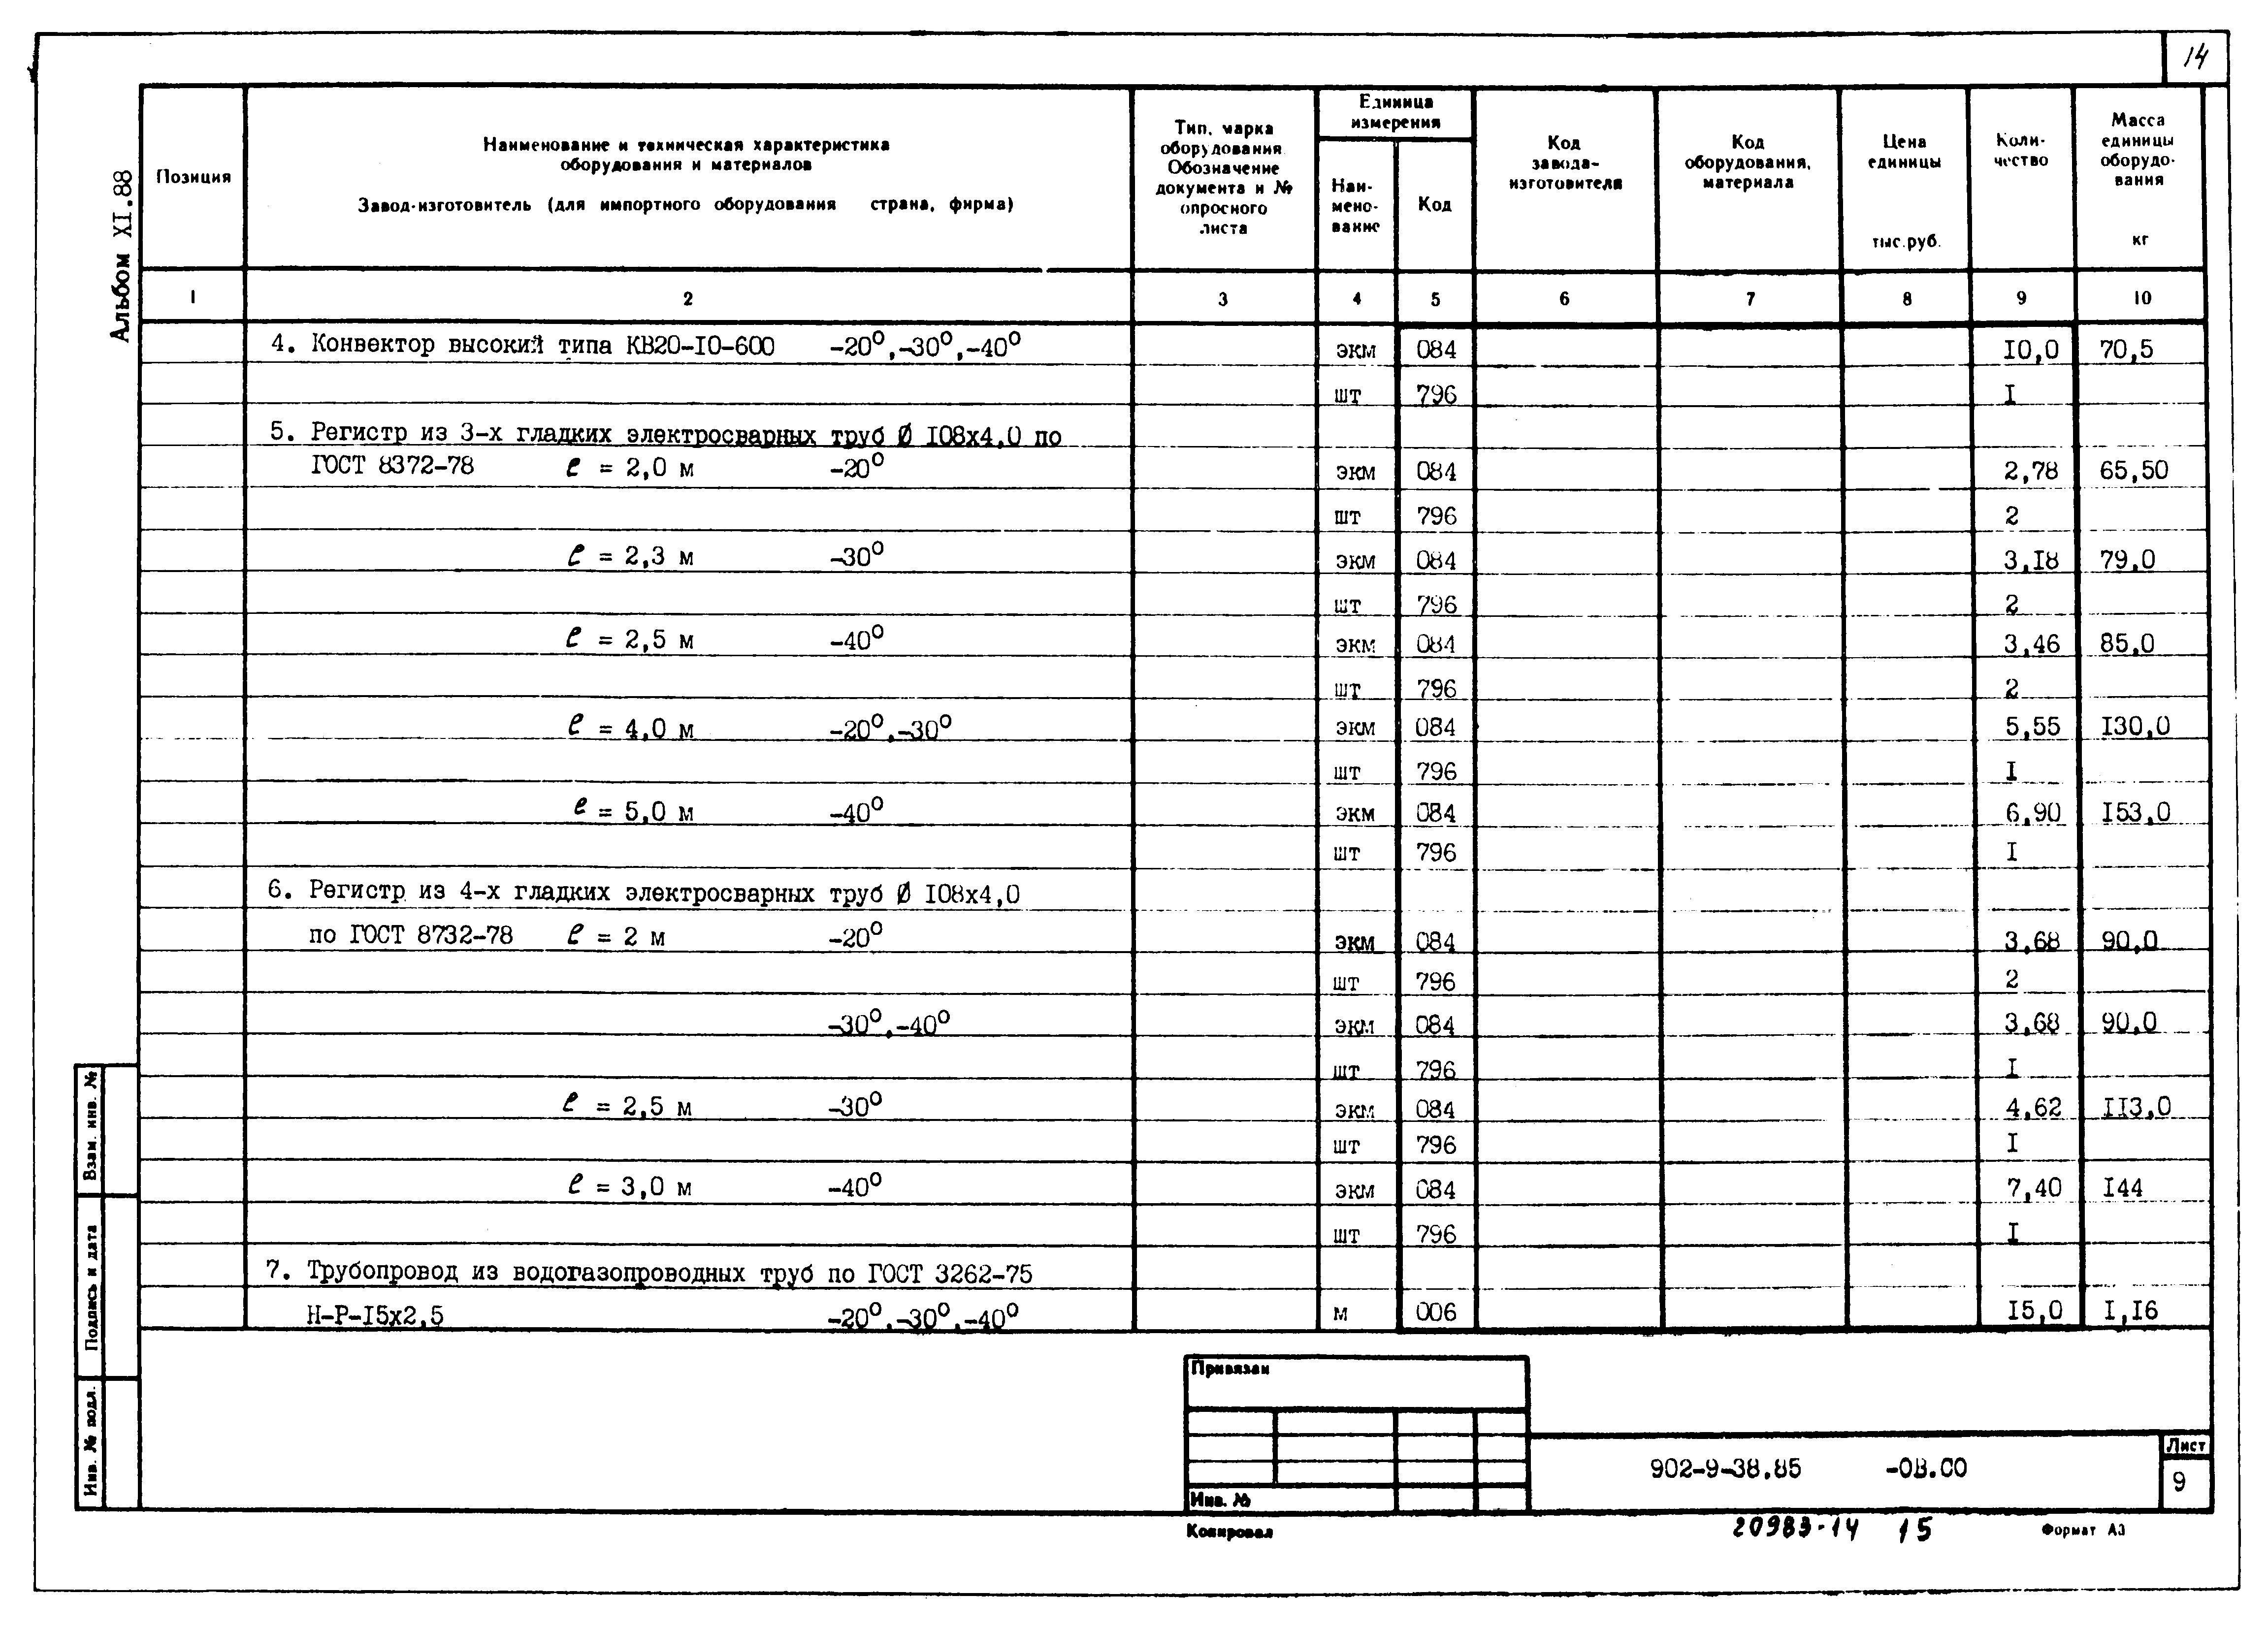 14
Альбом XI.88
Позиция
Наименование и техническая характеристика
оборудования и материалов
Завод-изготовитель (для импортного оборудования страна, фирма)
Тип, марка
оборудования.
Обозначение
документа и №
опросного
листа
Единица
измерения
Наи-
мено-
вание
Код
Код
завода-
изготовителя
Код
оборудования,
материала
Цена
единицы
тыс.руб.
Коли-
чество
Масса
единицы
оборудо-
вания
кг
1 2 3 4 5 6 7 8 9 10
4. Конвектор высокий типа КВ20-I0-600 -20⁰,-30⁰,-40⁰ экм 084 I0,0 70,5
шт 796 I
5. Регистр из 3-х гладких электросварных труб Ø I08х4,0 по
ГОСТ 8372-78 ℓ = 2,0 м -20⁰ экм 084 2,78 65,50
шт 796 2
ℓ = 2,3 м -30⁰ экм 084 3,I8 79,0
шт 796 2
ℓ = 2,5 м -40⁰ экм 084 3,46 85,0
шт 796 2
ℓ = 4,0 м -20⁰,-30⁰ экм 084 5,55 I30,0
шт 796 I
ℓ = 5,0 м -40⁰ экм 084 6,90 I53,0
шт 796 I
6. Регистр из 4-х гладких электросварных труб Ø I08х4,0
по ГОСТ 8732-78 ℓ = 2 м -20⁰ экм 084 3,68 90,0
шт 796 2
-30⁰,-40⁰ экм 084 3,68 90,0
шт 796 I
ℓ = 2,5 м -30⁰ экм 084 4,62 II3,0
шт 796 I
ℓ = 3,0 м -40⁰ экм 084 7,40 I44
шт 796 I
7. Трубопровод из водогазопроводных труб по ГОСТ 3262-75
Н-Р-I5х2,5 -20⁰,-30⁰,-40⁰ м 006 I5,0 I,I6
Взам. инв. №
Подпись и дата
Инв. № подл.
Привязан
Инв. №
902-9-38.85 -ОВ.СО
Лист
9
Копировал
20983-14 15
Формат А3